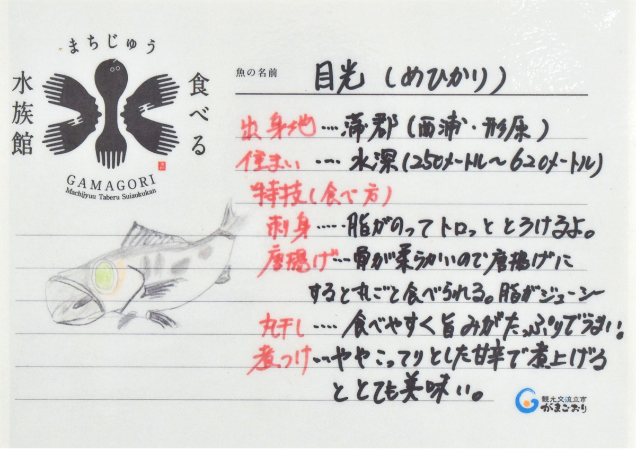 まちじゅう
食べる
水族館
GAMAGORI
Machijyuu Taberu Suizokukan
魚の名前 目光（めひかり）
出身地‥‥蒲郡（西浦・形原）
住まい‥‥水深（250メートル～620メートル）
特技（食べ方）
刺身‥‥‥脂がのってトロッととろけるよ。
唐揚げ‥‥骨が柔らかいので唐揚げに
すると丸ごと食べられる。脂がジューシー
丸干し‥‥食べやすく旨みがたっぷりでうまい。
煮つけ‥‥ややこってりとした甘辛で煮上げる
ととても美味い。
観光交流立市
がまごおり